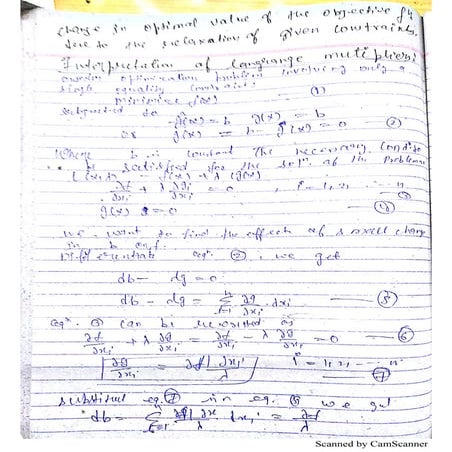 change in optimal value of the objective fn
due to the relaxation of given constraints.
Interpretation of langrange multipliers
optimization problem involving only a
single equality constraint
minimize f(x) (1)
subjected to g(x) = b
or g(x) = b - g(x) = 0 (2)
where b is constant the necessary conditions
to be satisfied for the soln of the problem
∂f/∂xi + λ ∂g/∂xi = 0 , i = 1, 2, ... n
g(x) = 0 (4)
we want to find the effect of small change
in b on f.
Differentiate eqn. (2), we get
db - dg = 0
db - dg = Σ ∂g/∂xi dxi (5)
eqn. can be rewritten as
∂f/∂xi + λ ∂g/∂xi = ∂f/∂xi - λ ∂g/∂xi = 0 (6)
∂g/∂xi = ∂f/∂xi / λ i = 1, 2, ... n (7)
substitut eq. (7) in eq. we get
db = Σ dxi = df/λ
Scanned by CamScanner